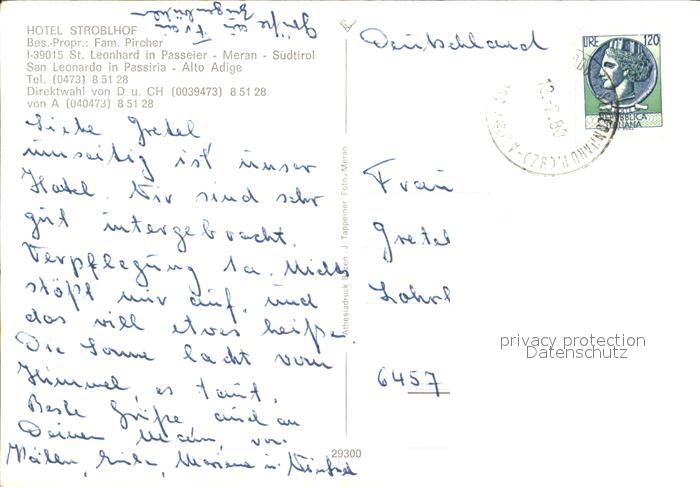 HOTEL STROBLHOF
Bes.-Propr.: Fam. Pircher
I-39015 St. Leonhard in Passeier - Meran - Südtirol
San Leonardo in Passiria - Alto Adige
Tel. (0473) 8 51 28
Direktwahl von D u. CH (0039473) 8 51 28
von A (040473) 8 51 28
Grüße an Frau
Liebe Gretel
umseitig ist unser
Hotel. Wir sind sehr
gut untergebracht.
Verpflegung 1a. Nichts
stößt mir auf, und
das will etwas heißen.
Die Sonne lacht vom
Himmel, es taut.
Beste Grüße auch an
Deinen Mann, von
Athesiadruck Bozen · J. Tappeiner Foto · Meran
29300
Deutschland
LIRE 120
REPUBBLICA
ITALIANA
Frau
Gretel
6457
privacy protection
Datenschutz